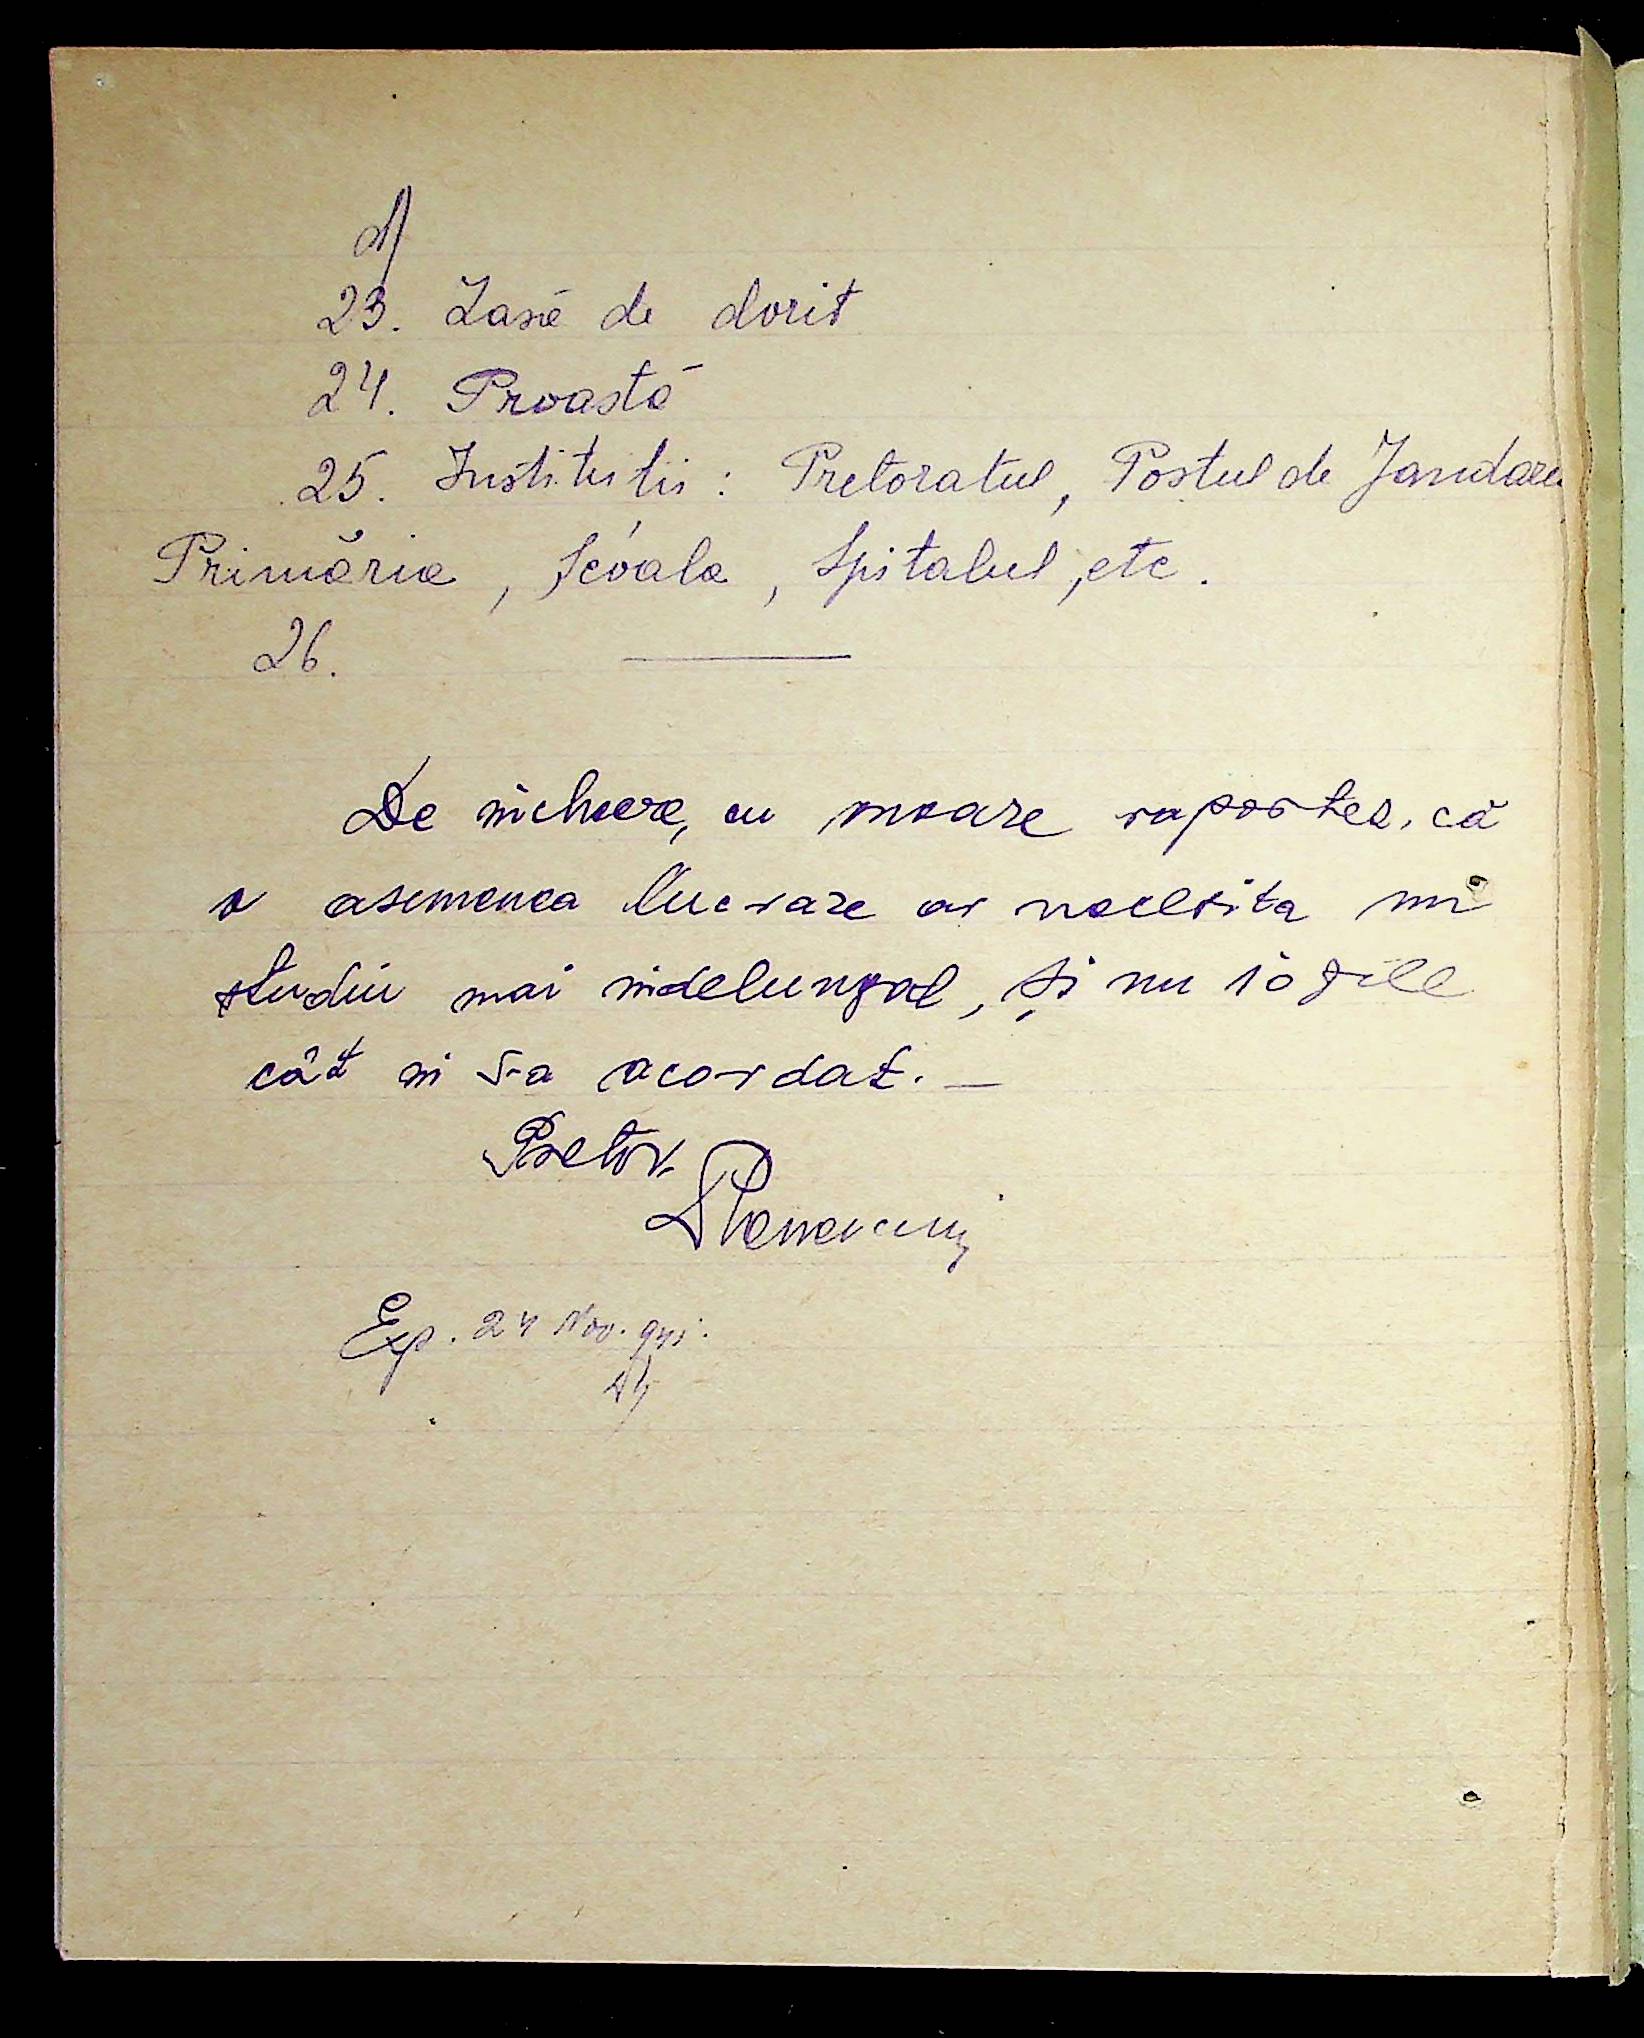 d)
23. Lasă de dorit
24. Proastă
25. Institutii: Pretoratul, Postul de Jandarmi
Primăria, Școala, Spitalul, etc.
26. ———
De încheere, cu onoare raportez, că
o asemenea lucrare ar necesita un
studiu mai îndelungat, și nu 10 zile
cât ni s-a acordat. —
Pretor
Exp. 24 Nov. 941.